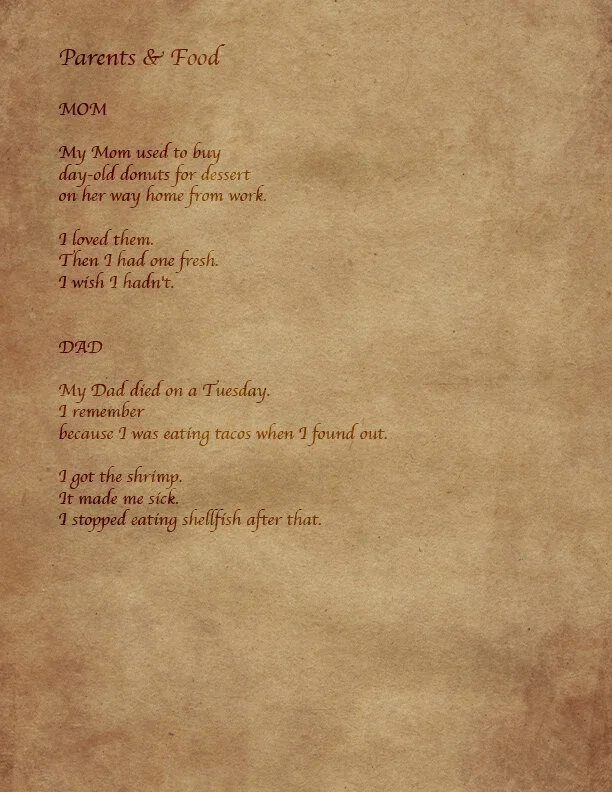 Parents & Food
MOM
My Mom used to buy
day-old donuts for dessert
on her way home from work.
I loved them.
Then I had one fresh.
I wish I hadn't.
DAD
My Dad died on a Tuesday.
I remember
because I was eating tacos when I found out.
I got the shrimp.
It made me sick.
I stopped eating shellfish after that.